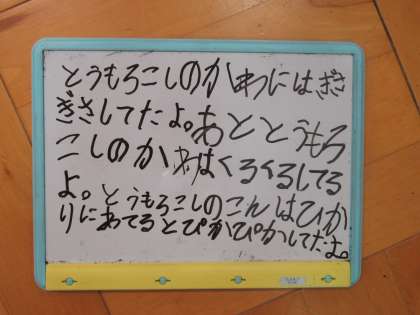 とうもろこしのかわにはぎざ
ぎざしてたよ。あととうもろ
こしのかわはくるくるしてる
よ。とうもろこしのこんはひか
りにあてるとぴかぴかしてたよ。